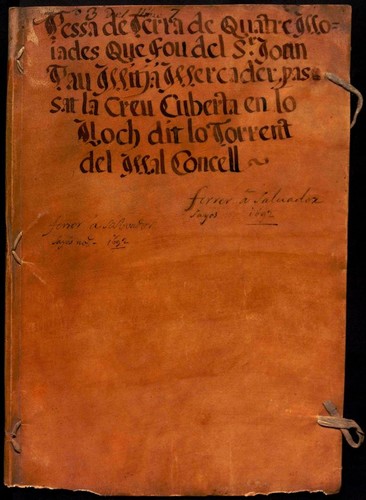 Pessa de Terra de Quatre Mo=
jades Que Fou del Sr. Joan
Pau Mitja Mercader, pas=
sat la Creu Cuberta en lo
Lloch dit lo Torrent
del Mal Concell ~
ferrer â Salvador
Sayos 1692
ferrer â Salvador
Sayos 1692